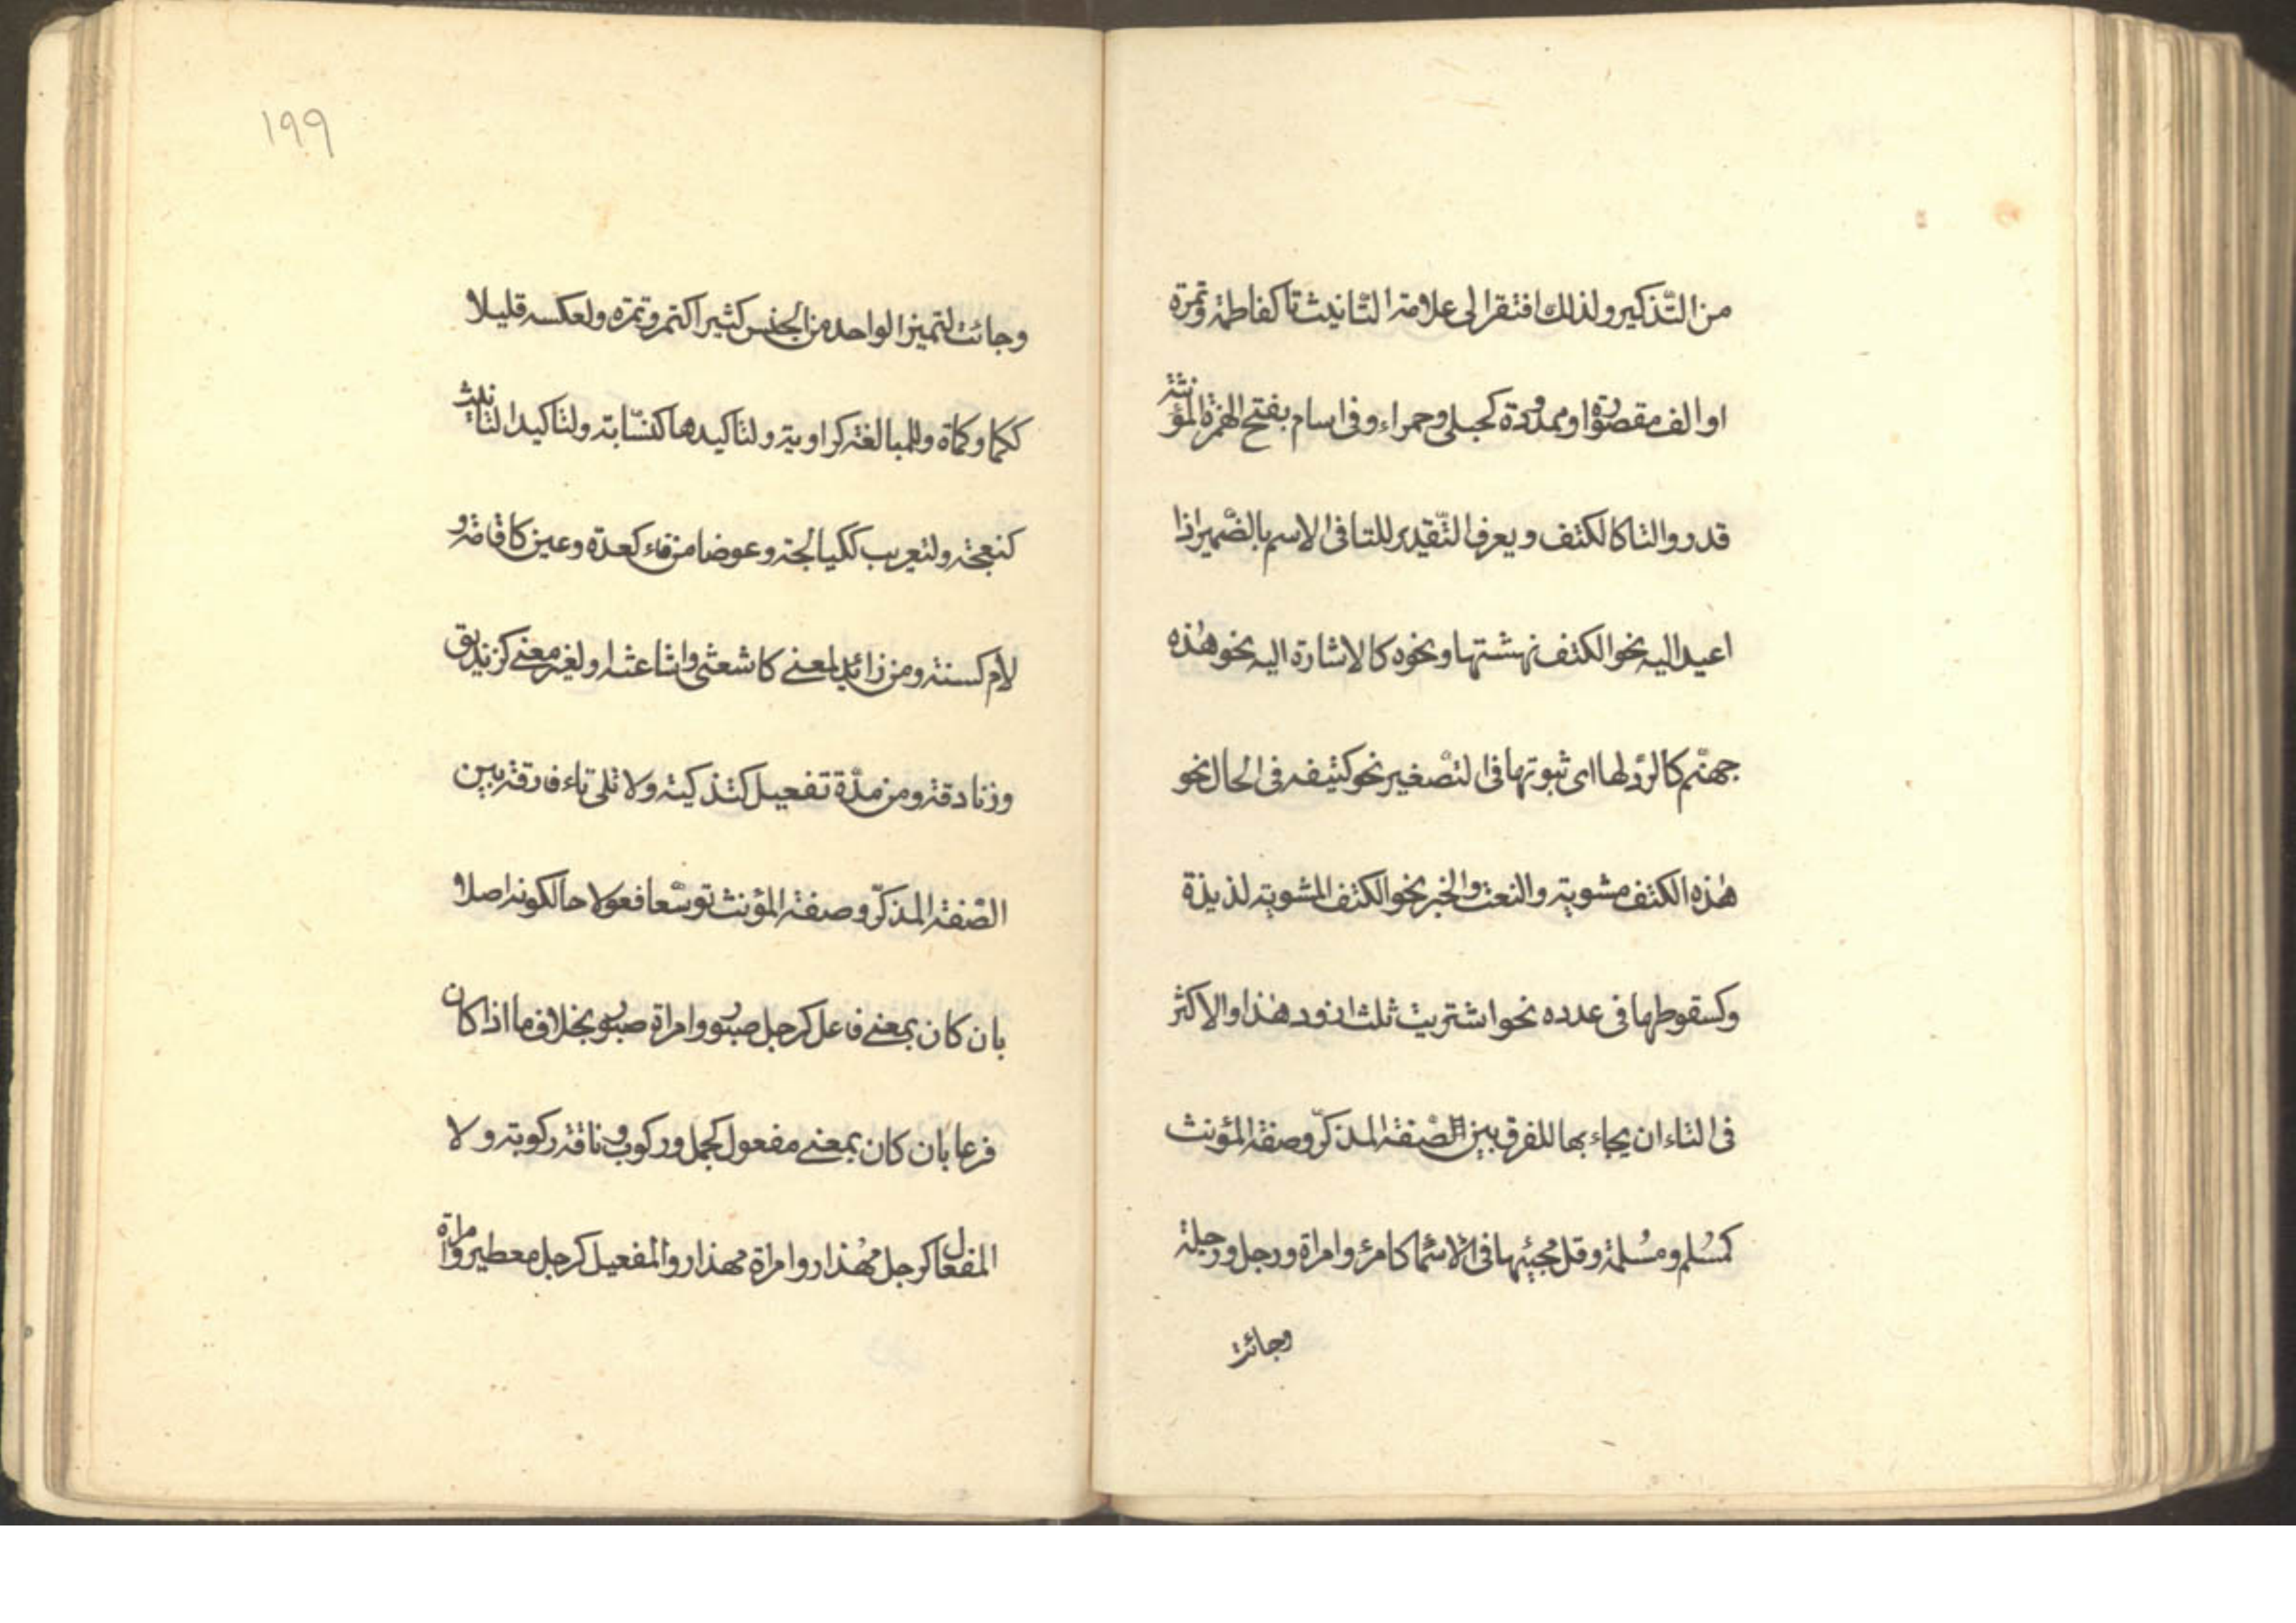 من التّذكير ولذلك افتقر الى علامة التّانيث تا كفاطمة وتمرة
او الف مقصورة او ممدودة كحبلى وحمراء وفى اسام بفتح الهمزة المؤنثة
قدروا التا كالكتف ويعرف التّقدير للتا فى الاسم بالضّمير اذا
اعيد اليه نحو الكتف نهشتها ونحوه كالاشارة اليه نحو هٰذه
جهنّم كالرّد لها اى ثبوتها فى التّصغير نحو كتيفه فى الحال نحو
هٰذه الكتف مشوية والنعت والخبر نحو الكتف المشوية لذيذة
وكسقوطها فى عدده نحو اشتريت ثلث اذود هٰذا والاكثر
فى التاء ان يجاء بها للفرق بين الصّفة المذكّر وصفة المؤنث
كمسُلم ومسُلمة وقل مجيئها فى الاسما كامرئ وامراة ورجل ورجلة
وجائت
١٩٩
وجائت لتميز الواحد من الجنس كثيرا كتمر وتمره ولعكسه قليلا
ككما وكماة وللمبالغة كراوية ولتاكيدها كنسّابة ولتاكيد التانيث
كنعجة ولتعريب ككيالجة وعوضا من فاء كعدة وعين كاقامة و
لام كسنة ومن زائد لمعنى كاشعثى واشاعثه ولغير معنى كزنديق
وزنادقة ومن مدّة تفعيل كتذكية ولا تلى تاء فارقة بين
الصّفة المذكّر وصفة المؤنث توسّعا فعولا حالكونه اصلا و
بان كان بمعنى فاعل كرجل صبور وامراة صبور بخلاف ما اذا كان
فرعا بان كان بمعنى مفعول كجمل وركوب وناقة ركوبة ولا
المفعال كرجل مهُذار وامراة مهذار والمفعيل كرجل معطير وامراة